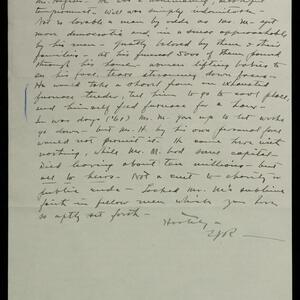 Mr. Rogers. He was a
impromist. Will was simply
Not so lovable a man by odds as Mr. M- yet
more democratic and, in a sense approachable
by his men - greatly beloved by them & their
families - At his funeral 5000 of them passed
through his home - women lifting babies to
see his face, tears streaming down faces -
He would take a shovel from an exhausted
furnace tender, tell him to go to a cool place,
and himself feed furnace for a hour -
In war days ('61) Mr. M. gave up to let works
go down - but Mr. H. by his own personal force
would not permit it. He came here with
nothing, while Mr. M. had some capital -
Died leaving about ten millions - but
all to heirs. Not a cent to charity or
public needs - Lacked Mr. M's sublime
faith in fellow men which you have
so aptly set forth -
Hastily -